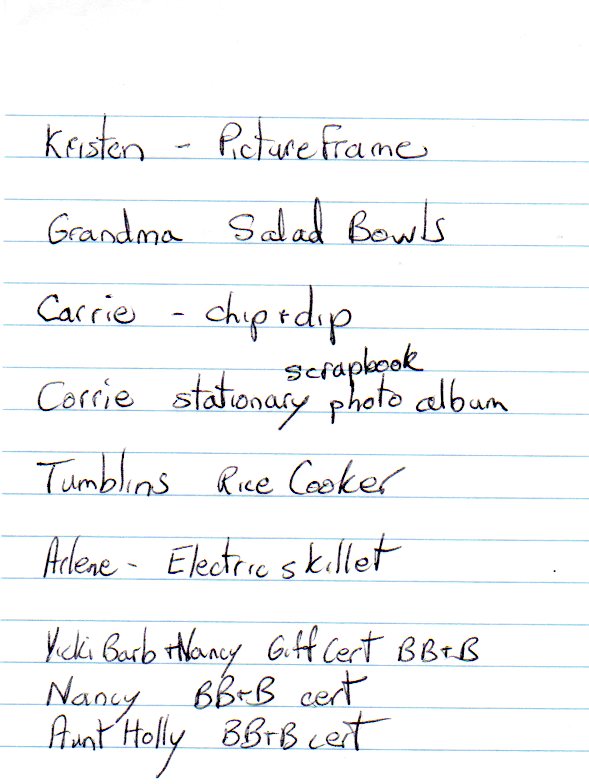 Kristen - Picture Frame
Grandma Salad Bowls
Carrie - chip + dip
scrapbook
Corrie stationary photo album
Tumblins Rice Cooker
Arlene - Electric skillet
Vicki Barb + Nancy Gift Cert BB+B
Nancy BB+B cert
Aunt Holly BB+B cert